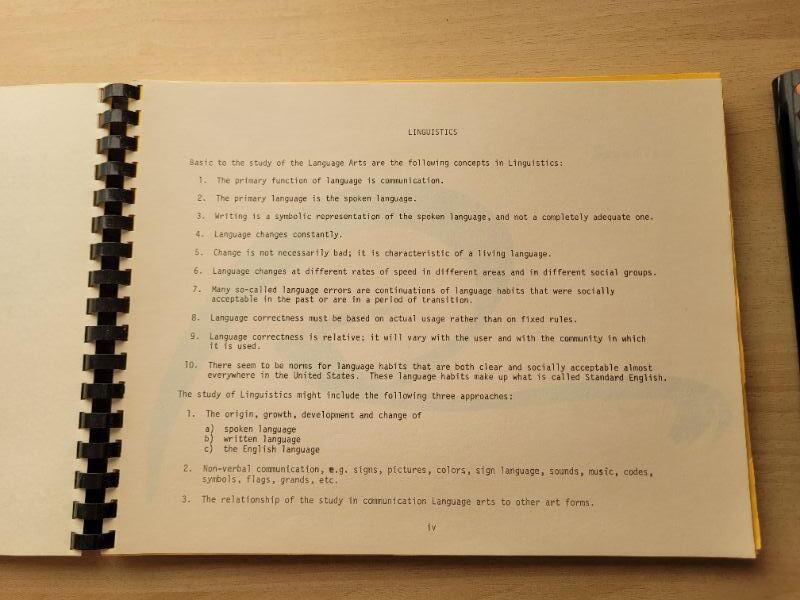 LINGUISTICS
Basic to the study of the Language Arts are the following concepts in Linguistics:
1. The primary function of language is communication.
2. The primary language is the spoken language.
3. Writing is a symbolic representation of the spoken language, and not a completely adequate one.
4. Language changes constantly.
5. Change is not necessarily bad; it is characteristic of a living language.
6. Language changes at different rates of speed in different areas and in different social groups.
7. Many so-called language errors are continuations of language habits that were socially
acceptable in the past or are in a period of transition.
8. Language correctness must be based on actual usage rather than on fixed rules.
9. Language correctness is relative; it will vary with the user and with the community in which
it is used.
10. There seem to be norms for language habits that are both clear and socially acceptable almost
everywhere in the United States. These language habits make up what is called Standard English.
The study of Linguistics might include the following three approaches:
1. The origin, growth, development and change of
a) spoken language
b) written language
c) the English language
2. Non-verbal communication, e.g. signs, pictures, colors, sign language, sounds, music, codes,
symbols, flags, grands, etc.
3. The relationship of the study in communication Language arts to other art forms.
iv